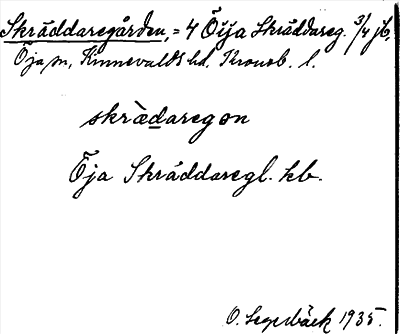 Skräddaregården, = 4 Öija Skräddareg. 3/4 jb,
Öja sn, Kinnevalds hd, Kronob. l.
skrädaregon
Öja Skräddaregl. kb.
O. Segerbäck 1935.